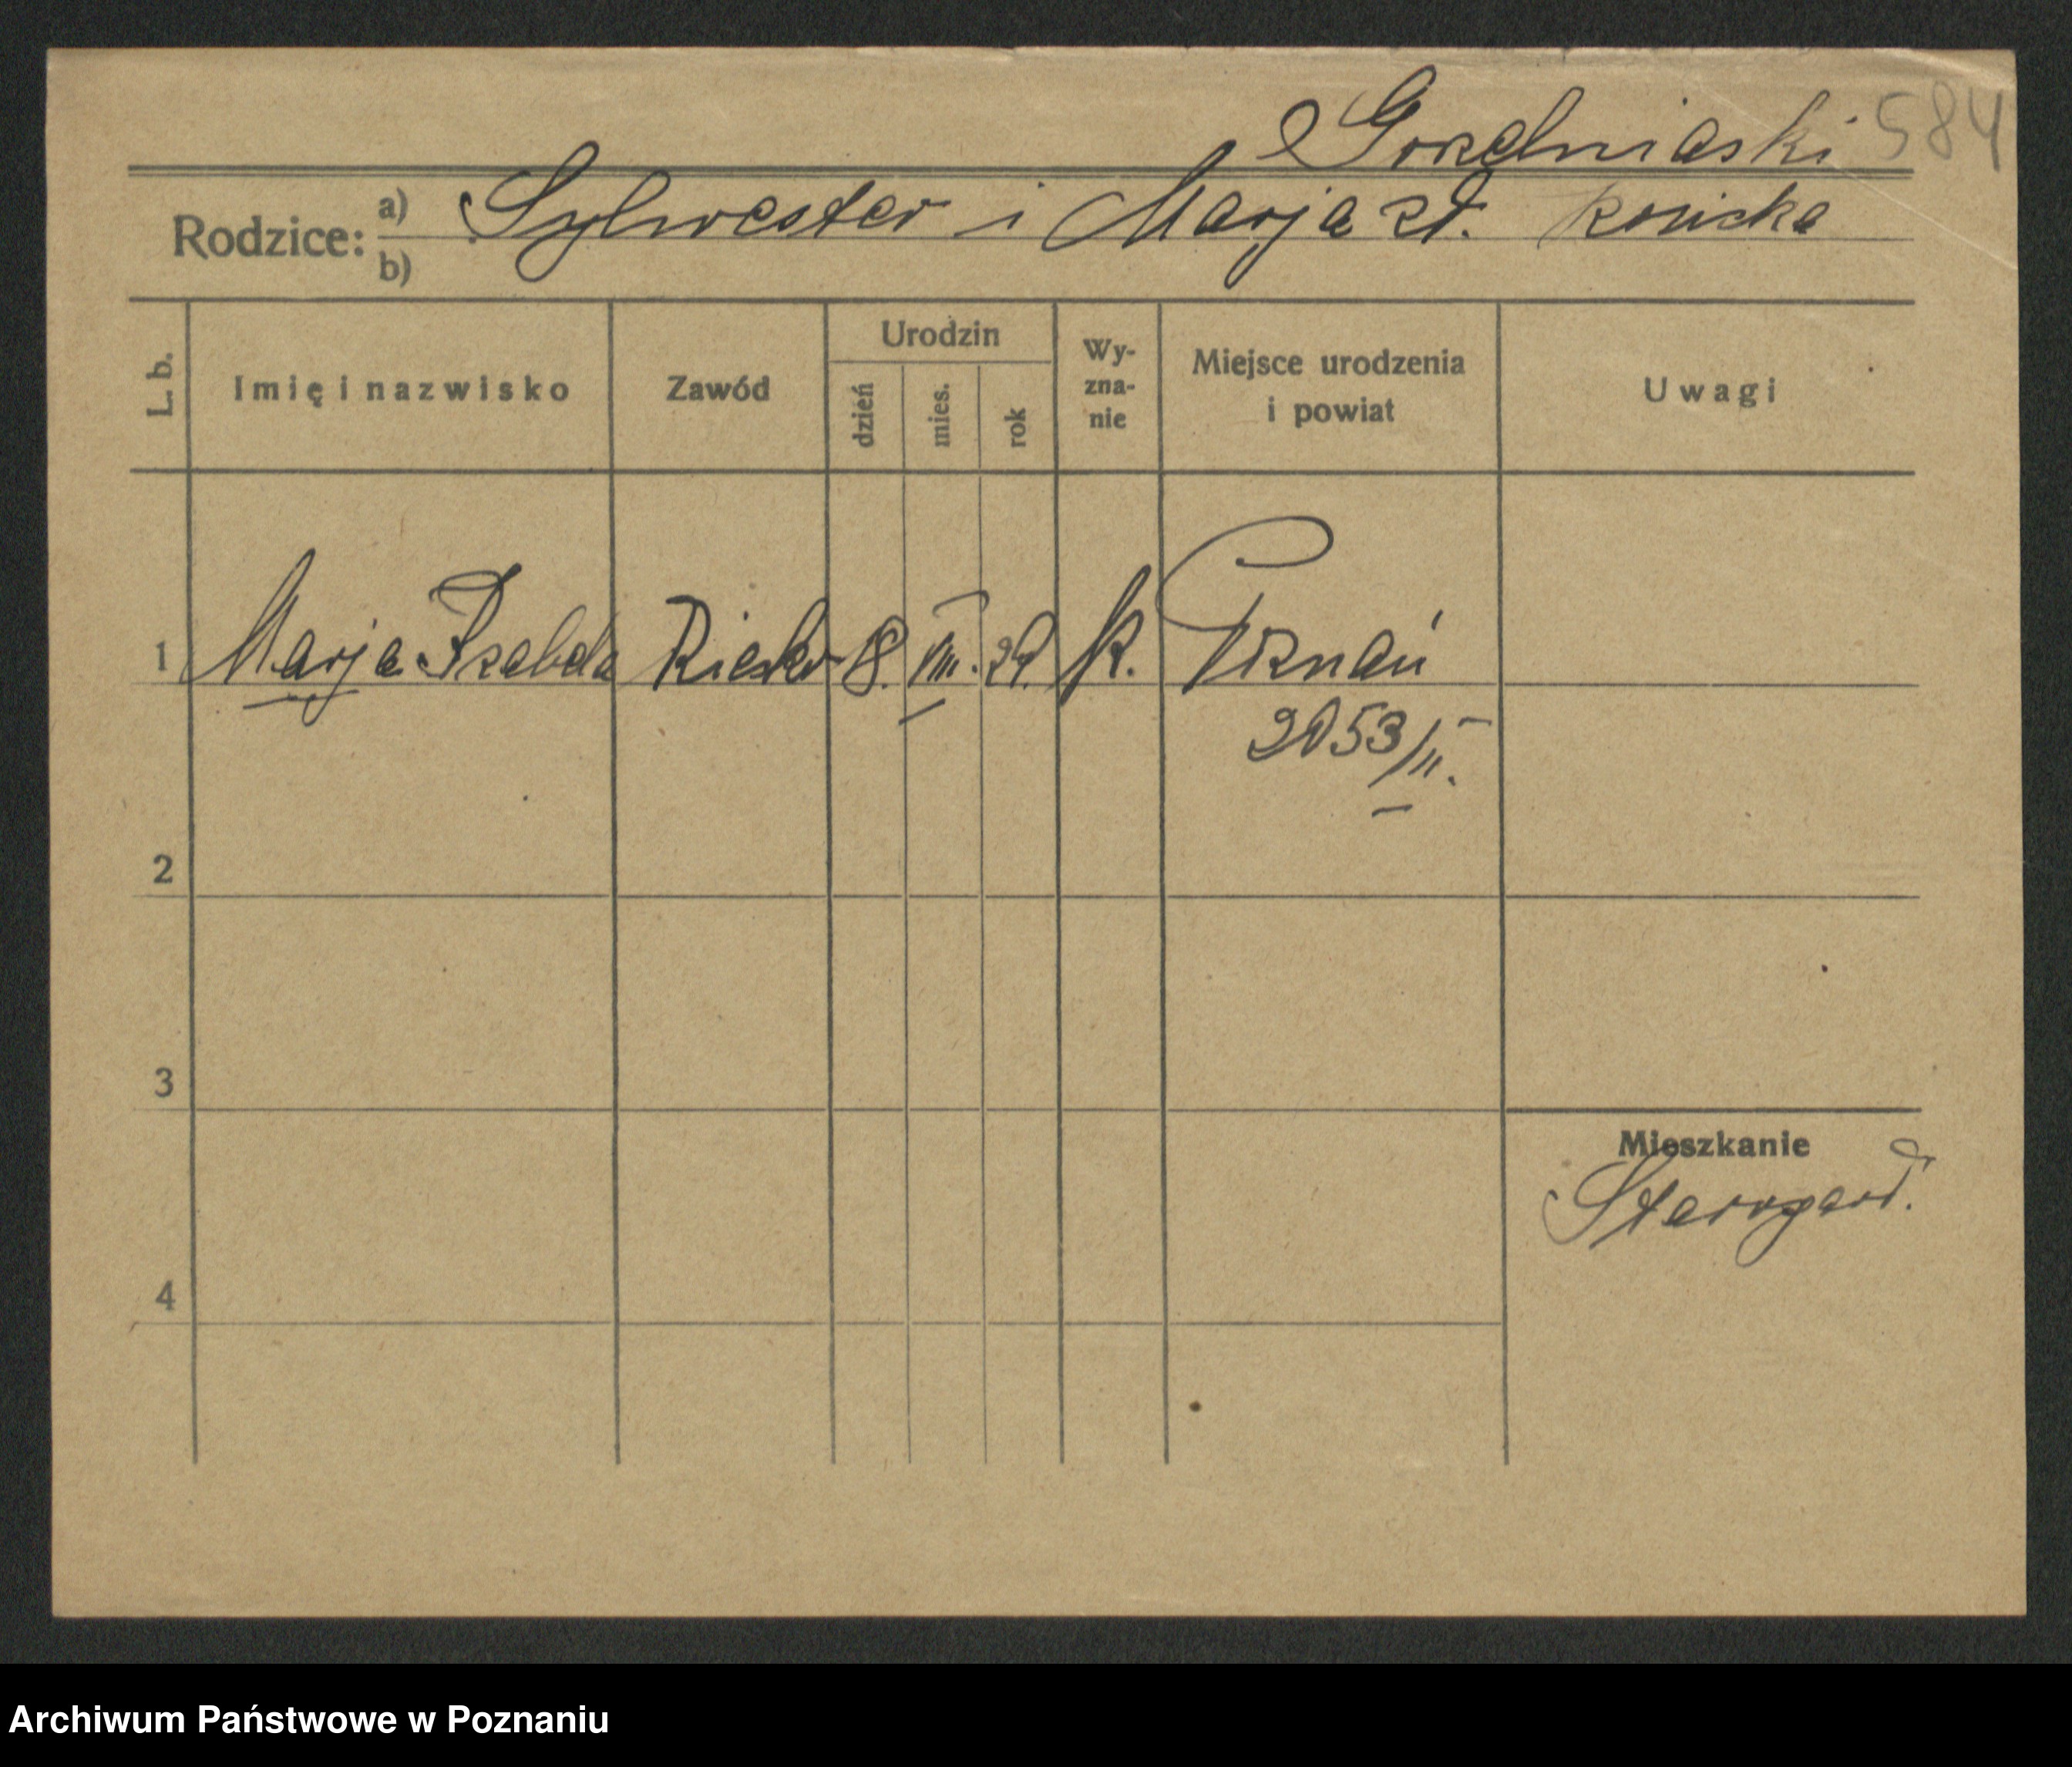 Gorzelniaski 584
Rodzice: a) Sylwester i Marja zd. Konicka
b)
L. b. Imię i nazwisko Zawód Urodzin dzień mies. rok Wyznanie Miejsce urodzenia i powiat Uwagi
1 Marja Izabela 8. VIII. 29. k. Poznań
2053/II.
2
3
Mieszkanie
Starogard.
4
Archiwum Państwowe w Poznaniu